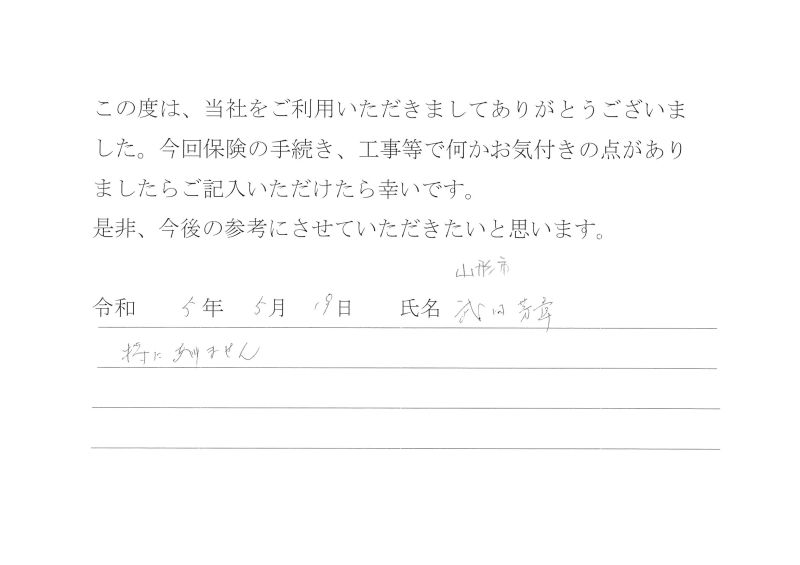 この度は、当社をご利用いただきましてありがとうございま
した。今回保険の手続き、工事等で何かお気付きの点があり
ましたらご記入いただけたら幸いです。
是非、今後の参考にさせていただきたいと思います。
山形市
令和 5年 5月 19日 氏名 武田芳章
特にありません